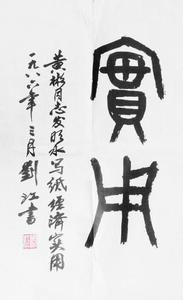 實用
黄彬同志发明水写纸经濟实用
一九八六年三月劉江書